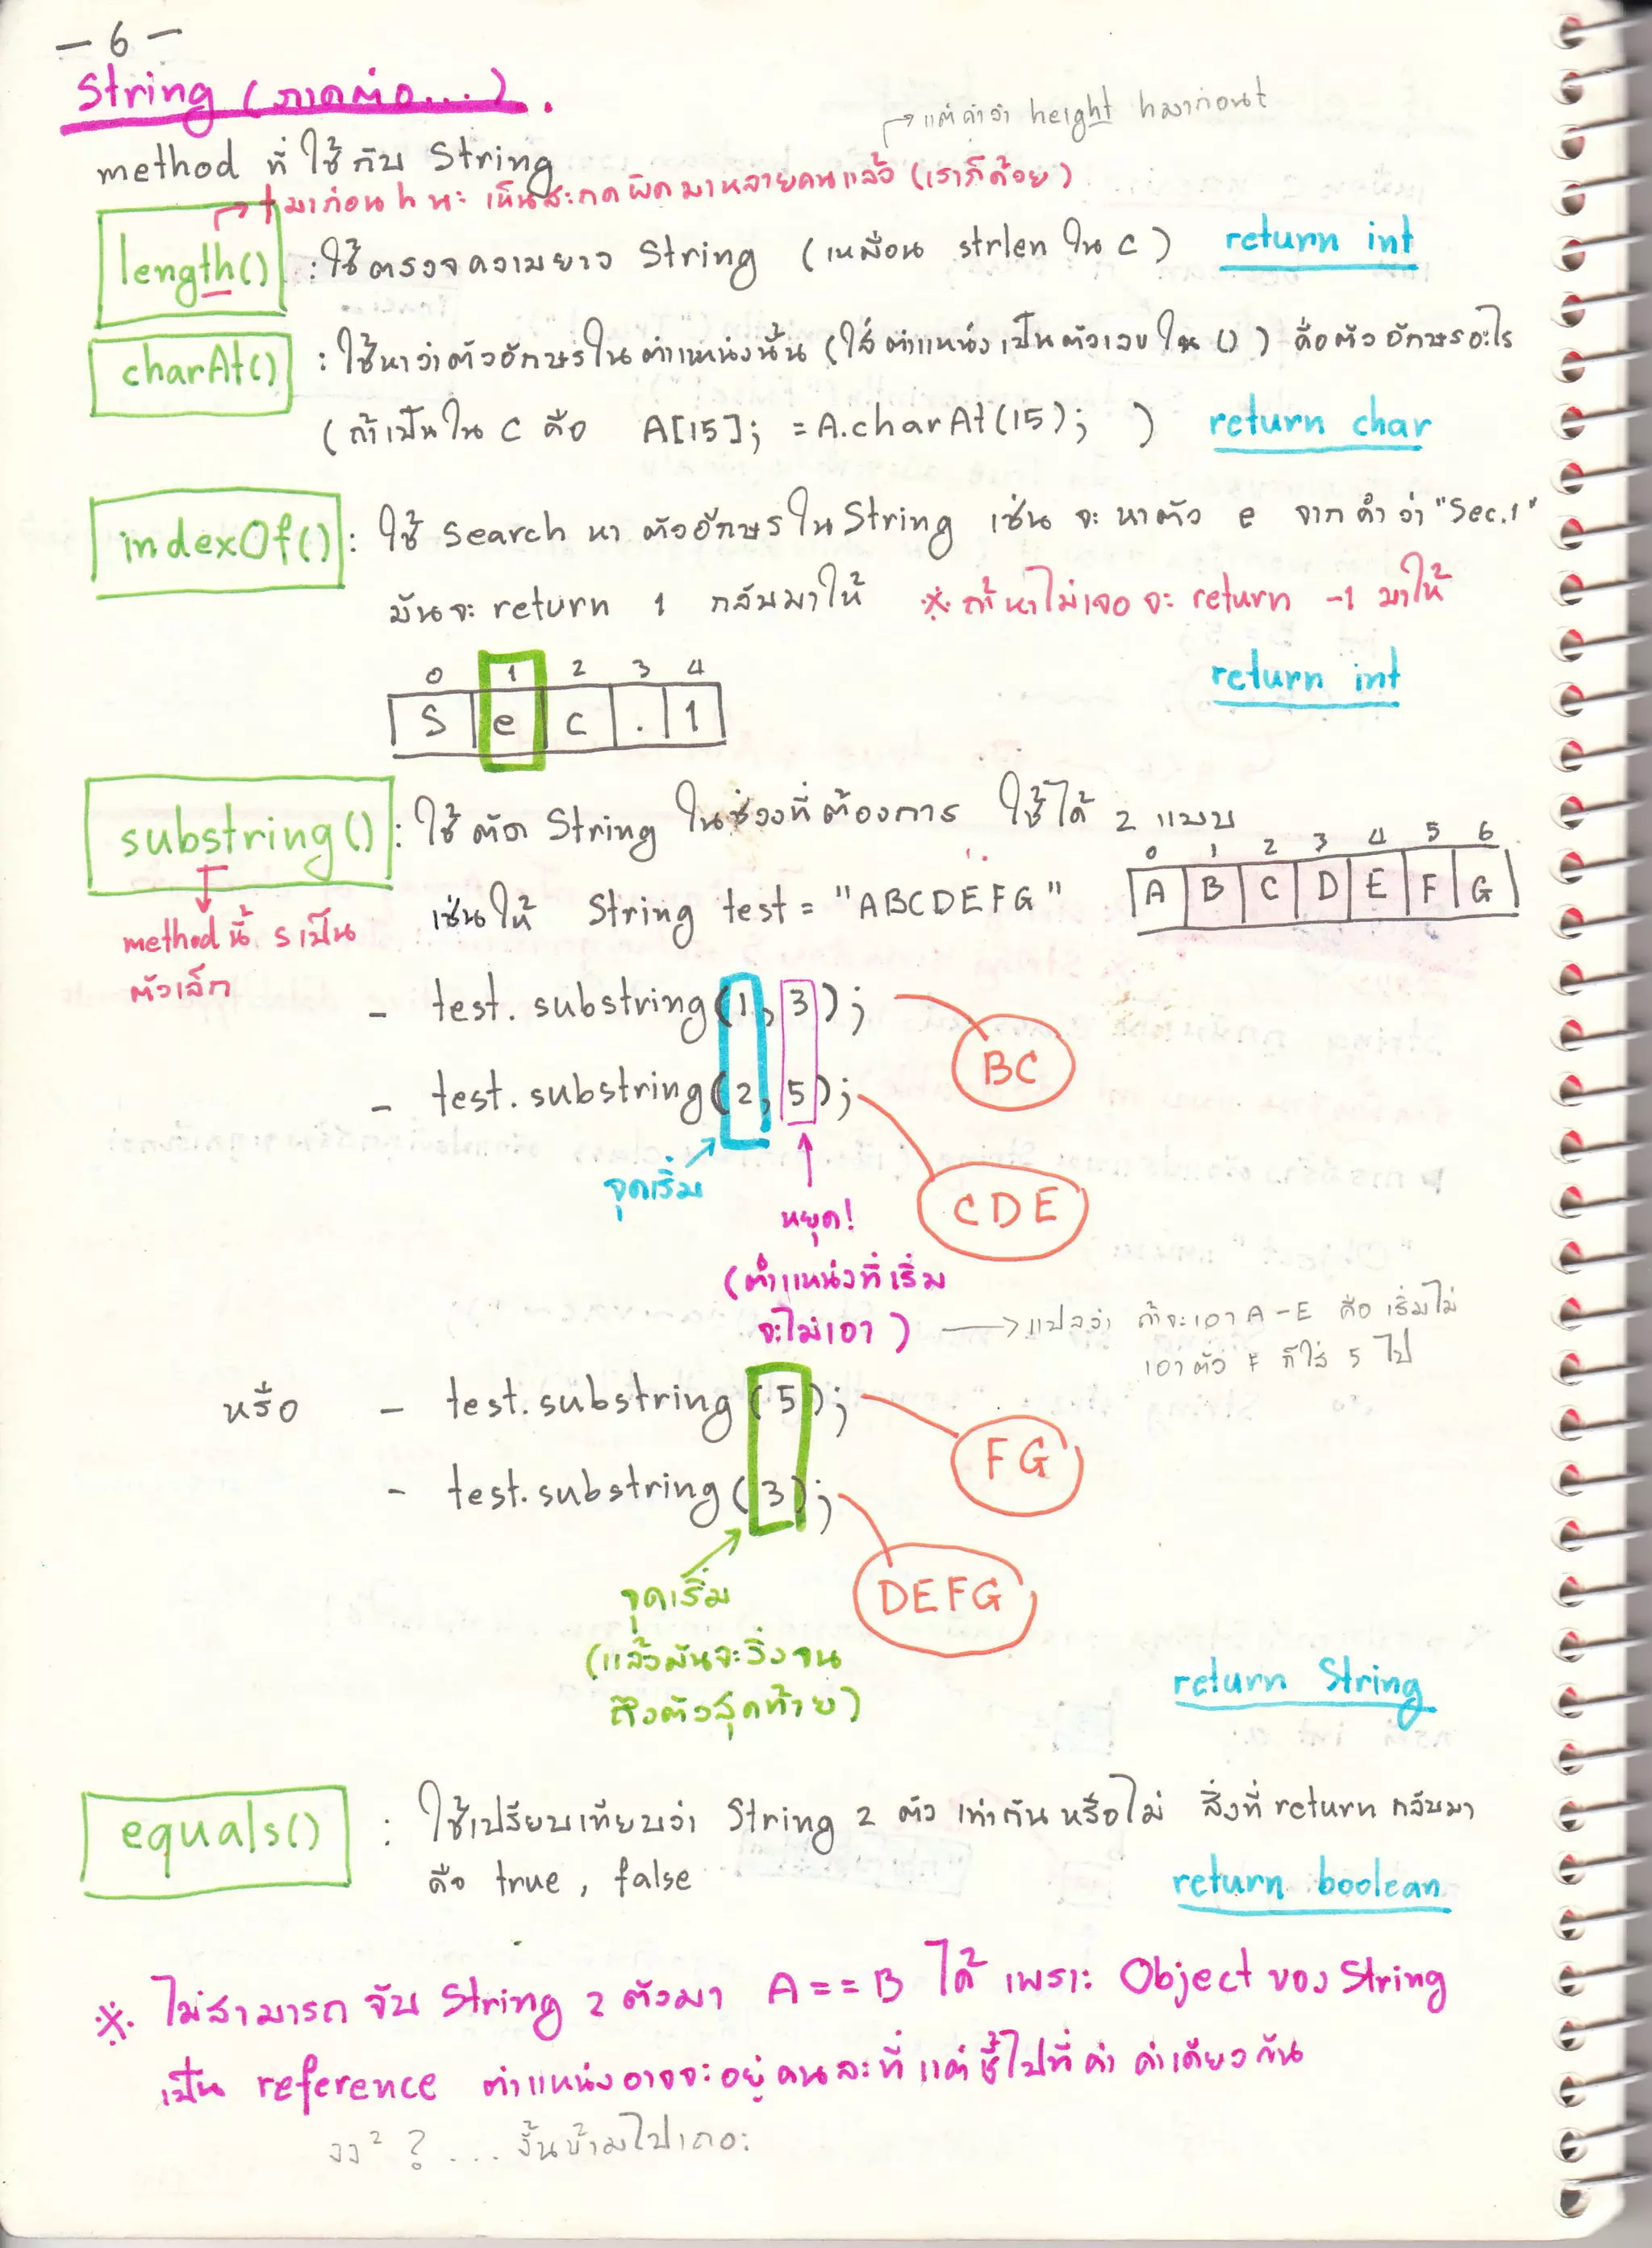 - 6 -
String (ภาคต่อ...).
method ที่ใช้กับ String
→ แต่คำว่า height h มาก่อน t
→ t มาก่อน h นะ เห็นสะกดผิดมาหลายคนแล้ว (เราก็ด้วย)
length() : ใช้ตรวจความยาว String (เหมือน strlen ใน C) return int
charAt() : ใช้หาว่าตัวอักษรในตำแหน่งนั้น (ใส่ตำแหน่งเป็นตัวเลขใน ()) คือตัวอักษรอะไร
(ถ้าเป็นใน C คือ A[15]; = A.charAt(15); ) return char
indexOf() : ใช้ search หา ตัวอักษรใน String เช่น จะหาตัว e จากคำว่า "Sec.1"
มันจะ return 1 กลับมาให้ ※ ถ้าหาไม่เจอจะ return -1 มาให้
return int
0 1 2 3 4
S e c . 1
substring() : ใช้ตัด String ในช่วงที่ต้องการ ใช้ได้ 2 แบบ
0 1 2 3 4 5 6
A B C D E F G
เช่นให้ String test = "ABCDEFG"
method นี้ s เป็น
ตัวเล็ก
- test.substring(1,3); BC
- test.substring(2,5); CDE
จุดเริ่ม
หยุด!
(ตำแหน่งที่เริ่ม
จะไม่เอา) → แปลว่า ถ้าจะเอา A-E คือ เริ่มไม่
เอาตัว F ก็ใส่ 5 ไป
หรือ - test.substring(5); FG
- test.substring(3); DEFG
จุดเริ่ม
(แล้วมันจะวิ่งจน
ถึงตัวสุดท้าย)
return String
equals() : ใช้เปรียบเทียบว่า String 2 ตัว เท่ากันหรือไม่ สิ่งที่ return กลับมา
คือ true, false
return boolean
※ ไม่สามารถ จับ String 2 ตัวมา A==B ได้ เพราะ Object ของ String
เป็น reference ตำแหน่งอาจจะอยู่คนละที่ แต่ชี้ไปที่ค่า ค่าเดียวกัน
งง² ? ... งั้นข้ามไปเถอะ